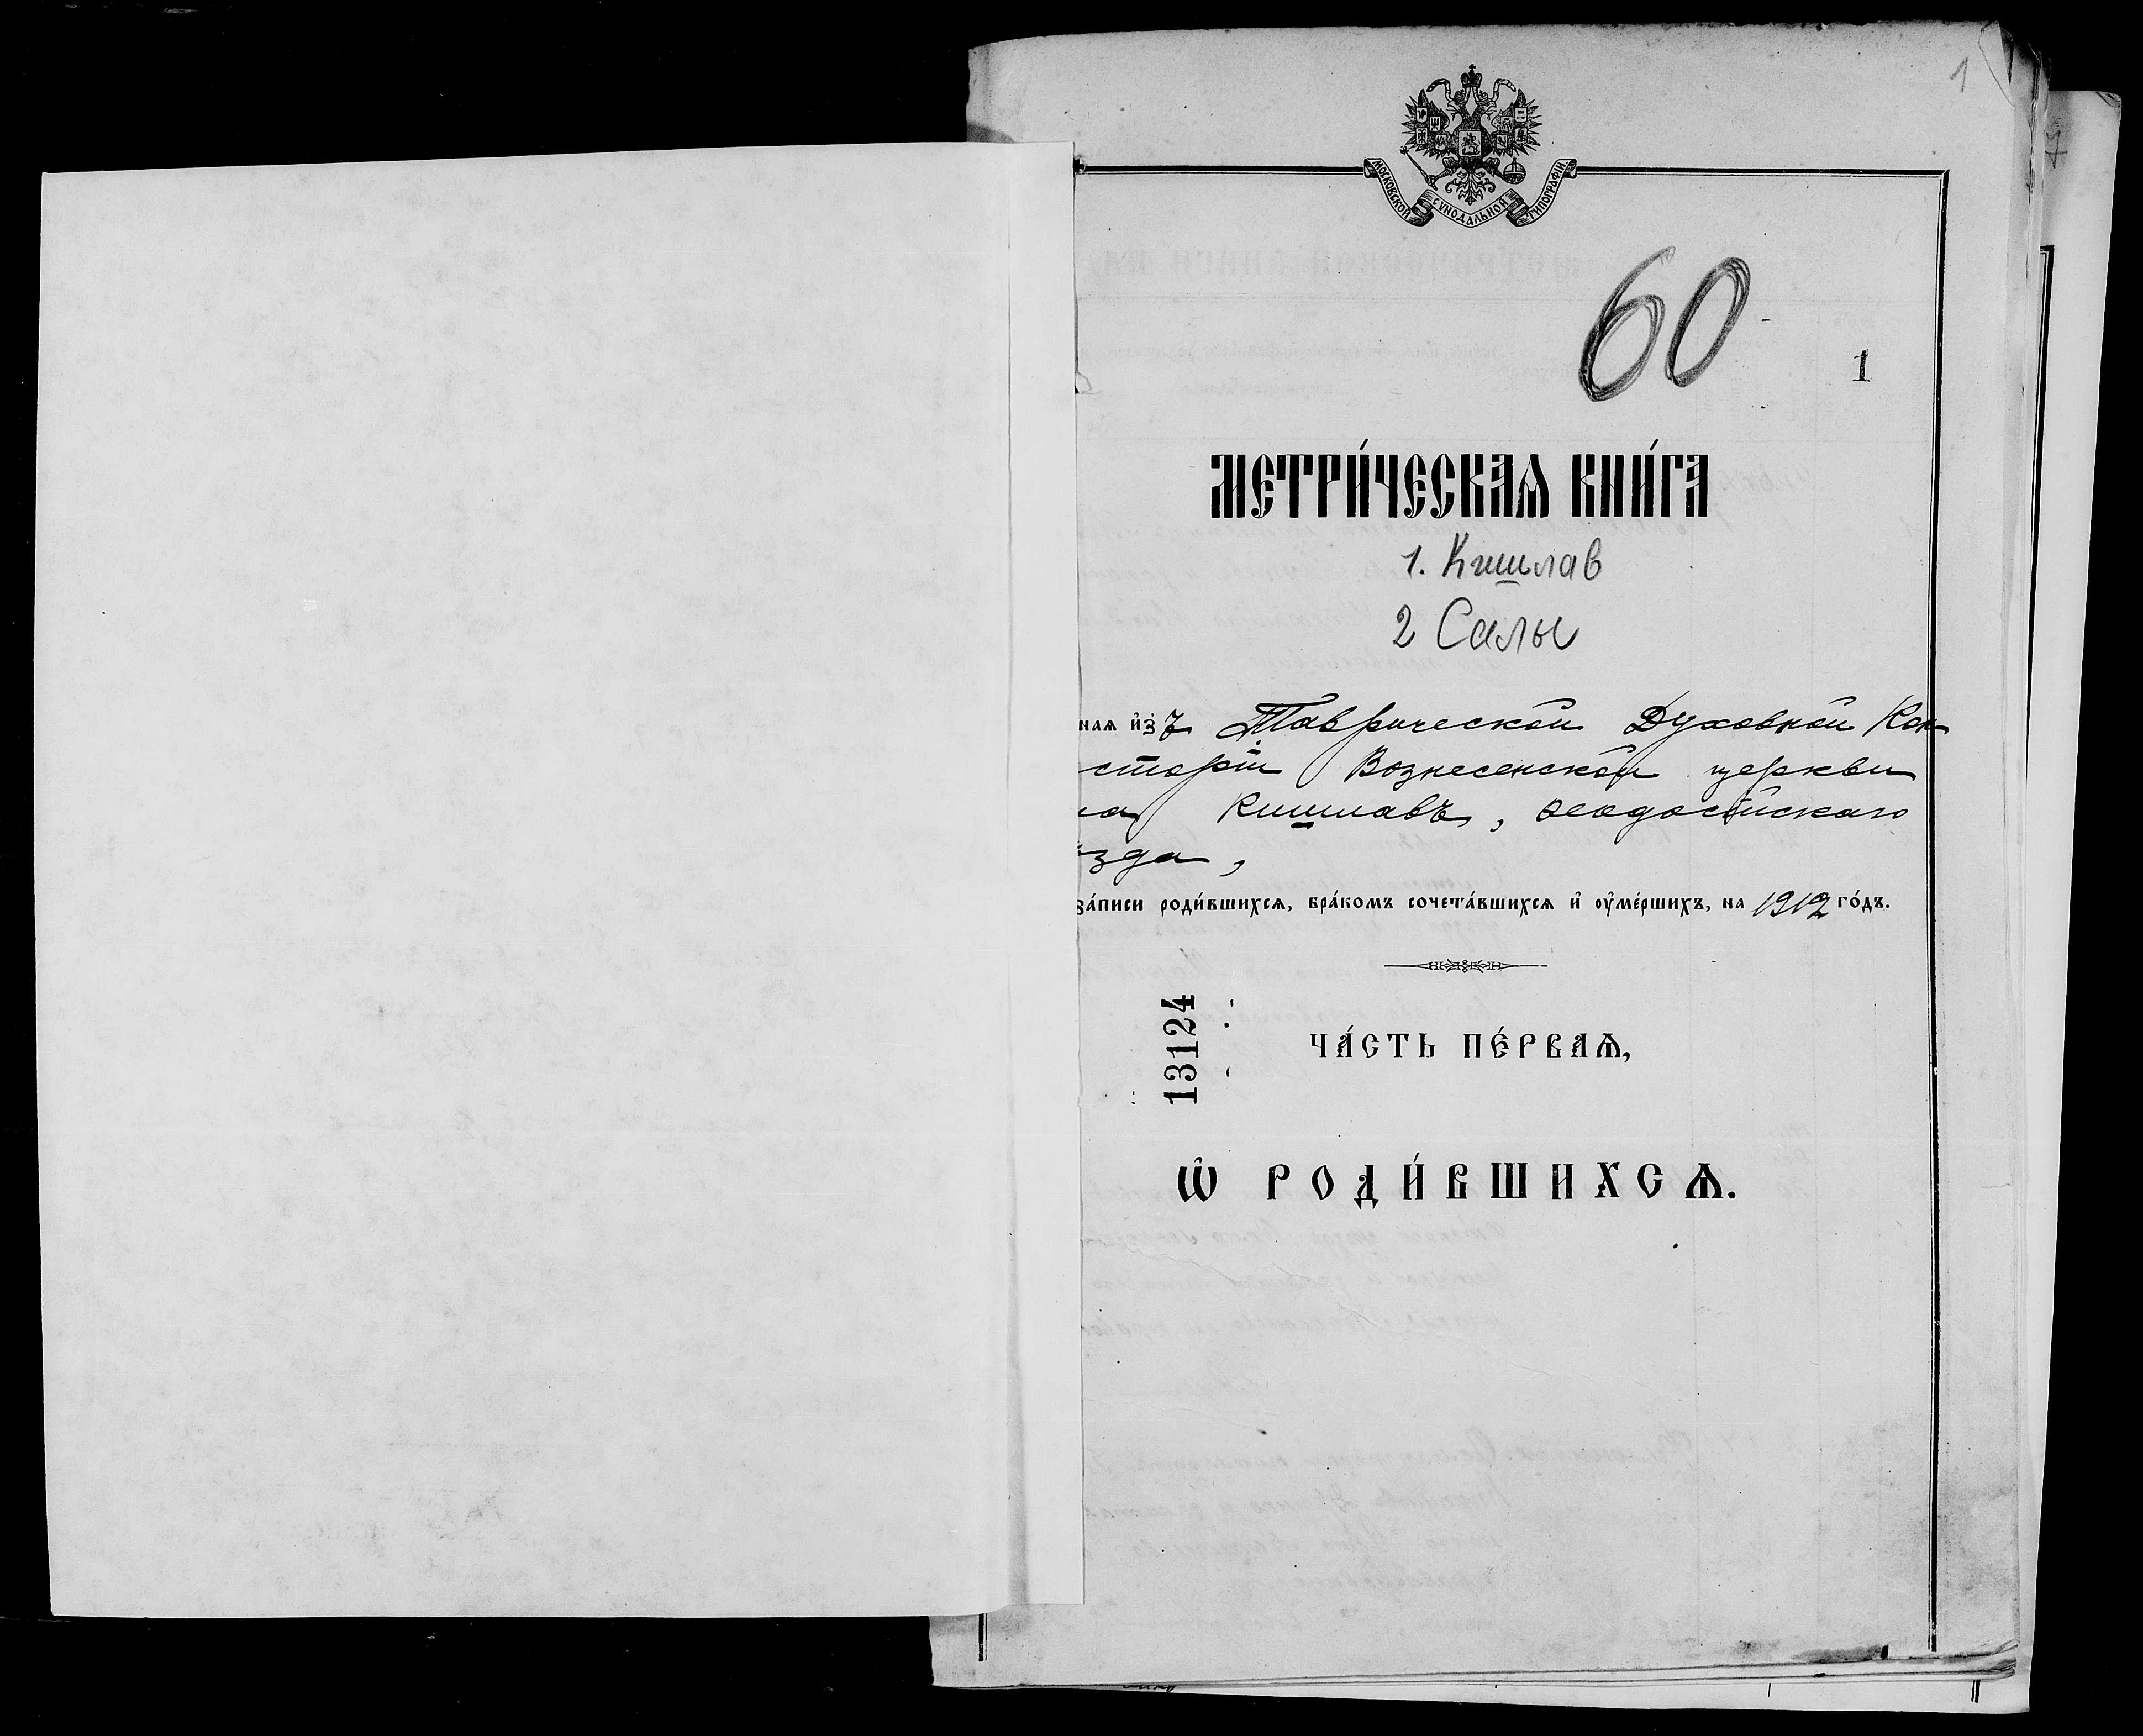 1
7
МОСКОВСКОЙ СѴНОДАЛЬНОЙ ТИПОГРАФІИ
60
1
МЕТРИ́ЧЕСКАѦ КНИ́ГА
1. Кишлав
2 Салы
наѧ и҆зъ Таврической Духовной Кон
систоріи Вознесенской церкви
ла Кишлавъ, Ѳеодосійскаго
ѣзда,
за́писи роди́вшихсѧ, бра́комъ сочета́вшихсѧ и҆ ᲂу҆ме́ршихъ, на 1912 го́дъ.
13124
ЧА́СТЬ ПЕ́РВАѦ,
Ѡ҆ РОДИ́ВШИХСѦ.